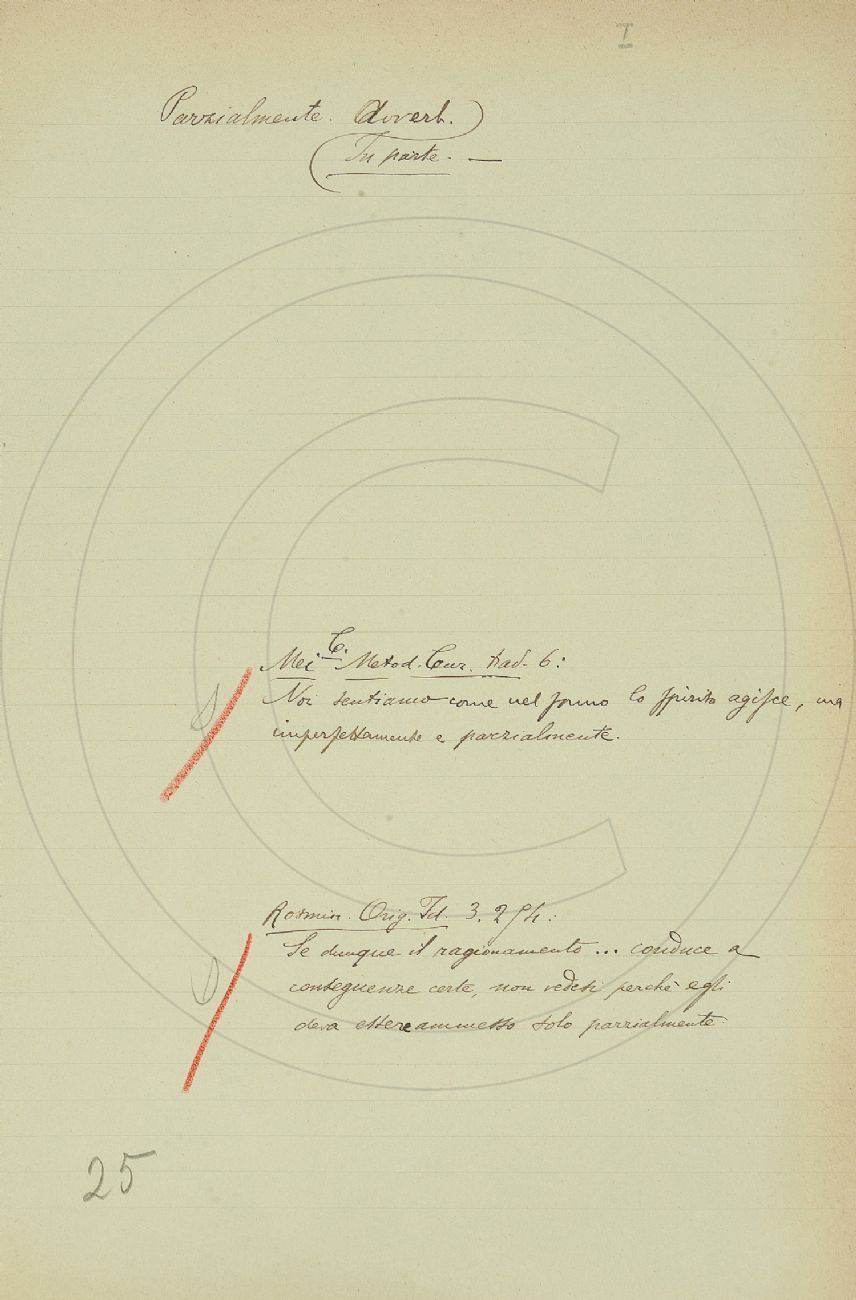 I
Parzialmente. Avverb.
In parte. —
Mei C. Metod. Cur. trad. 6:
Noi sentiamo come nel sonno lo spirito agisce, ma
imperfettamente e parzialmente.
Rosmin. Orig. Id. 3. 254:
Se dunque il ragionamento ... conduce a
conseguenze certe, non vedesi perchè egli
deva essere ammesso solo parzialmente.
25